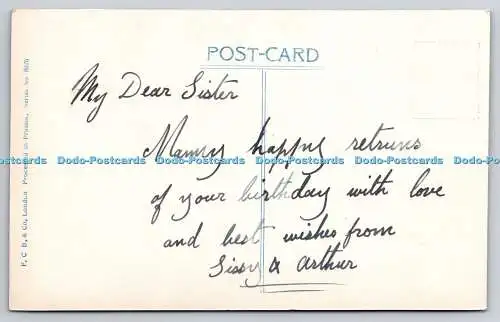 POST-CARD
My Dear Sister
Manny happy retruns
Dodo-Postcards Dodo-Postcards Dodo-Postcards Dodo-Postcards Dodo-Postcards
of your birthday with love
and best wishes from
Sissy & Arthur
F. C. B. & Co, London Processed in Prussia. Series No